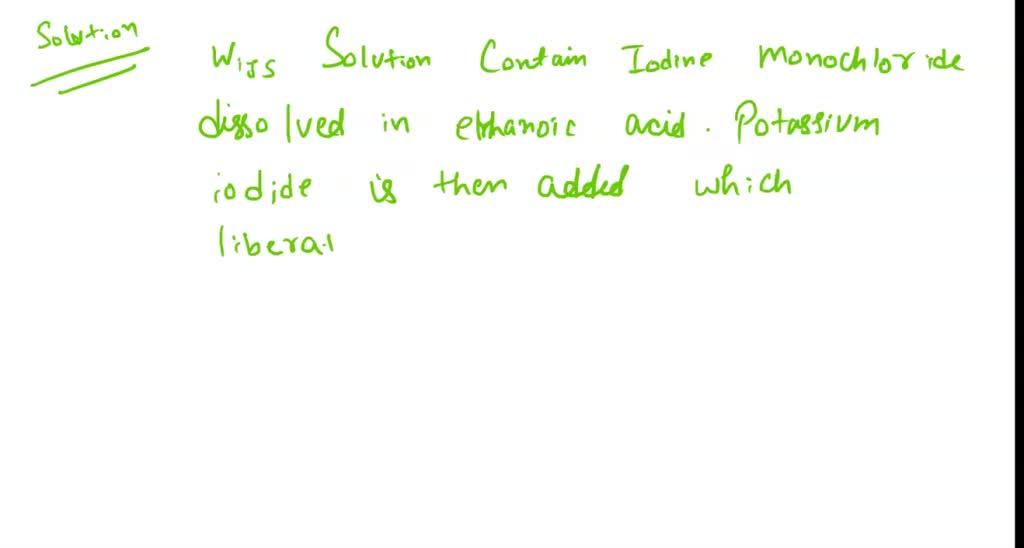 Solution
Wijs Solution Contain Iodine monochloride
dissolved in ethanoic acid. Potassium
iodide is then added which
liberat